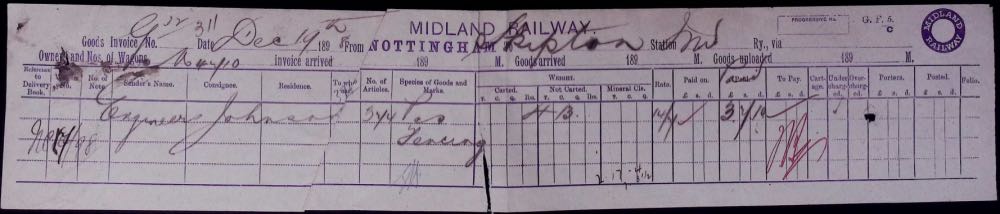 MIDLAND RAILWAY.
PROGRESSIVE No.
G. F. 5.
C
MIDLAND RAILWAY
Goods Invoice No. 311 Date Dec 14th 189 From NOTTINGHAM Skipton Station Mid Ry., via
Owner and Nos. of Wagons invoice arrived 189 M. Goods arrived 189 M. Goods unloaded 189 M.
Reference to Delivery Book. No. of Note. Sender's Name. Consignee. Residence. No. of Articles. Species of Goods and Marks. WEIGHT. Rate. Paid on. Paid To Pay. Cartage. Undercharged. Overcharged. Porters. Posted. Folio.
Carted. Not Carted. Mineral Cls.
T. C. Q. lbs. T. C. Q. lbs. T. C. Q. £ s. d. £ s. d. £ s. d. £ s. d. £ s. d.
Engineers Johnson 344 Pcs 4 13 14/1 3 7 10
Fencing
2 17 4½